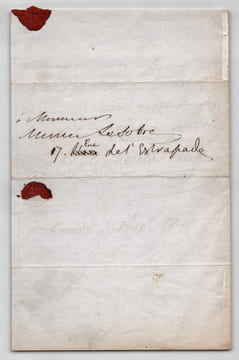 à Monsieur
Monsieur Lesobre
17. Rue de l'Estrapade